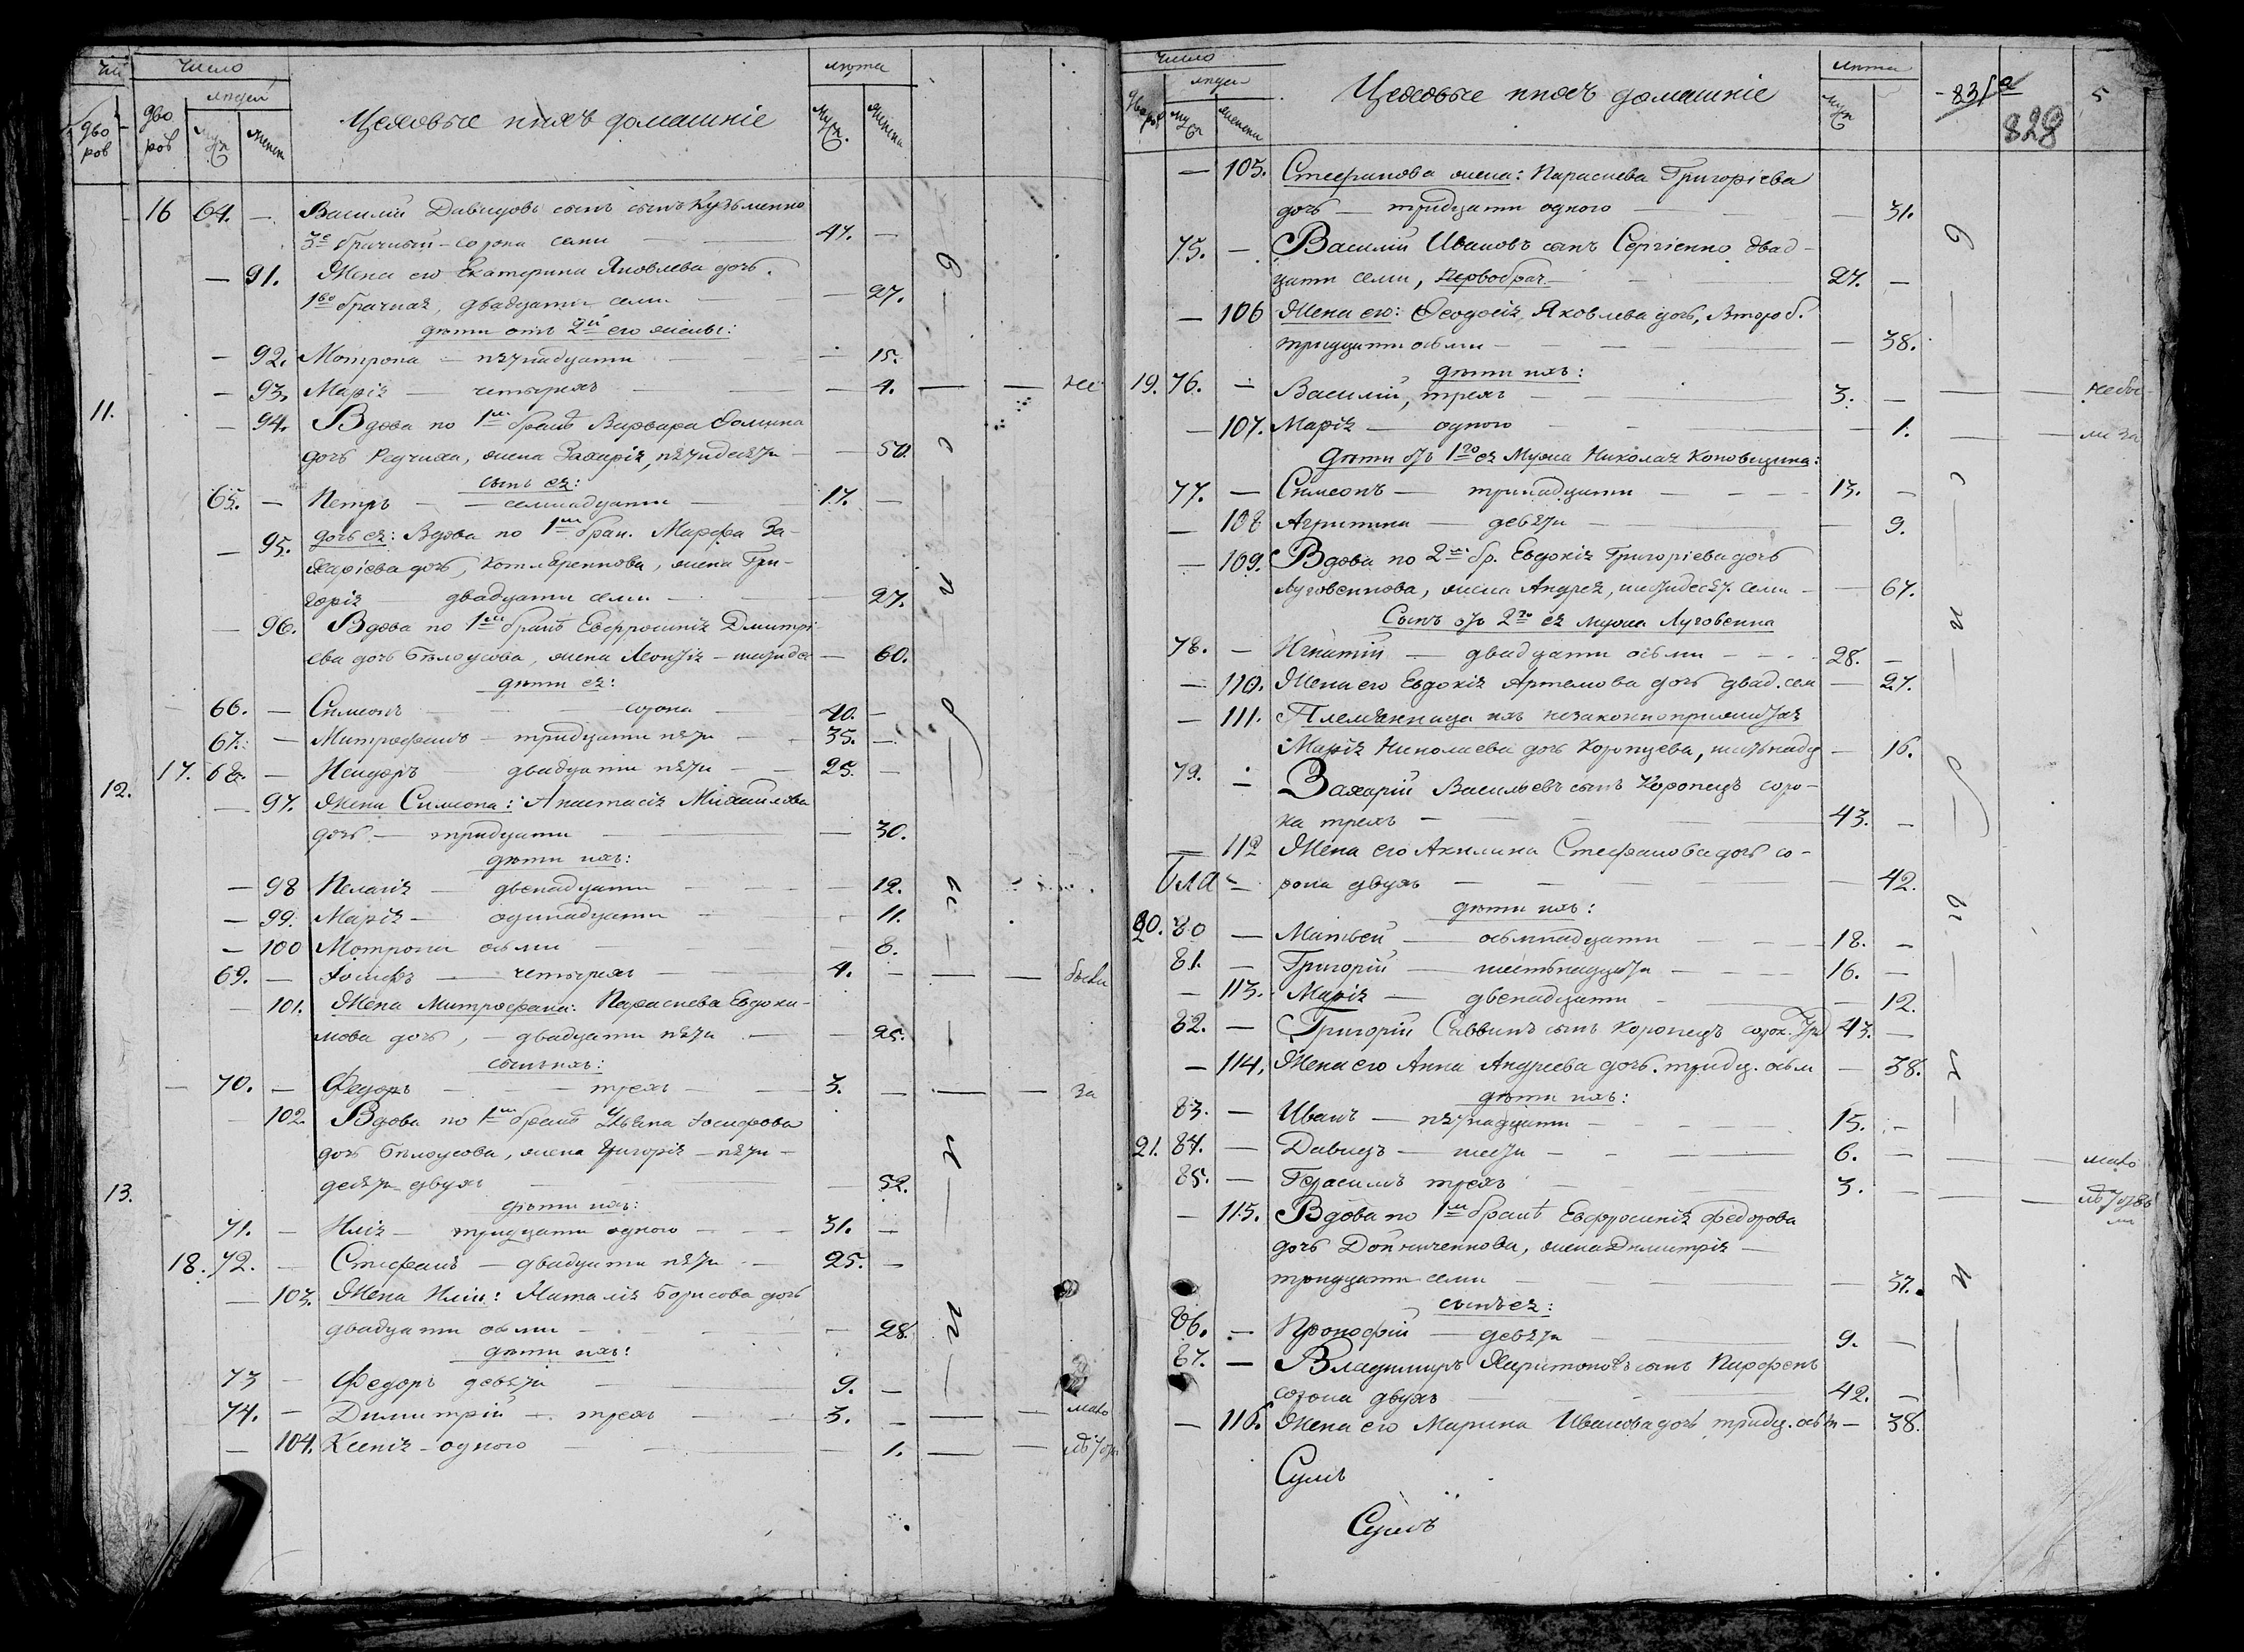 Число
людей
лѣта
дво
ров
дво
ров
муж
женск
Цеховые и ихъ домашніе
муж.
женск
16 64. — Василій Давидовъ сынъ Кузьменко
3го брачный — сорока семи — 47. —
— 91. Жена его Екатерина Яковлева дочь.
1го брачная, двадцати семи — 27.
дѣти отъ 2й его жены:
— 92. Мотрона — пятнадцати — 15.
— 93. Марія — четырехъ — 4. — — не
11. — 94. Вдова по 1мъ бракѣ Варвара Фомина
дочь жена Захарія, пятидесяти — 50.
сынъ ея:
65. — Петръ — семнадцати 17. —
— 95. дочь ея: Вдова по 1мъ брак. Марфа За-
харіева дочь, Котляренкова, жена Гри-
горія — двадцати семи — 27.
— 96. Вдова по 1мъ бракѣ Евфросинія Дмитрі-
ева дочь Бѣлоусова, жена Леонтія — шестидес — 60.
дѣти ея:
66. — Симеонъ — сорока 40. —
67. — Митрофанъ — тридцати пяти — 35. —
17. 68. — Исидоръ — двадцати пяти — 25. —
12. — 97. Жена Симеона: Анастасія Михайлова
дочь — тридцати — 30.
дѣти ихъ:
— 98 Пелагія — двенадцати — 12.
— 99. Марія — одинадцати — 11.
— 100 Мотрона осьми — 8.
69. — Іосифъ — четырехъ 4. — — — были
— 101. Жена Митрофана: Параскева Евдоки-
мова дочь, — двадцати пяти — 25.
сынъ ихъ:
— 70. — Федоръ — трехъ — 3. — — — за
— 102. Вдова по 1мъ бракѣ Ульяна Іосифова
дочь Бѣлоусова, жена Григорія — пяти-
13. десяти двухъ — 52.
дѣти ихъ:
71. — Илія — тридцати одного — 31. —
18. 72. — Стефанъ — двадцати пяти — 25. —
— 103. Жена Иліи: Наталія Борисова дочь
двадцати осьми — 28.
дѣти ихъ:
73 — Федоръ девяти — 9. —
74. — Димитрій — трехъ — 3. — — — мало
— 104. Ксенія — одного — 1. — —
Число
людей
лѣта
дворов
муж
женск
Цеховые и ихъ домашніе
муж
831
828
5
— 105. Стефанова жена: Параскева Григоріева
дочь — тридцати одного — 31.
75. — Василій Ивановъ сынъ Сергіенко двад-
цати семи, первобрач. — 27. —
— 106 Жена его: Феодосія Яковлева дочь, второб.
тридцати осьми — 38.
дѣти ихъ:
19. 76. — Василій, трехъ — 3. — — — небы
— 107. Марія — одного — 1. — — ли за
Дѣти отъ 1го ея мужа Николая Коповщина:
77. — Симеонъ — тринадцати — 13. —
— 108 Агрипина — девяти — 9.
— 109. Вдова по 2мъ бр. Евдокія Григоріева дочь
Луговенкова, жена Андрея, шестидесят. семи — 67.
Сынъ отъ 2го ея мужа Луговенка
78. — Игнатій — двадцати осьми — 28. —
— 110. Жена его Евдокія Артемова дочь двад. сем — 27.
— 111. Племянница ихъ незаконноприжитая
Марія Николаева дочь Коропцева, шестьнадц — 16.
79. — Захарій Васильевъ сынъ Коропецъ соро-
ка трехъ — 43. —
— 112 Жена его Акилина Стефанова дочь со-
рока двухъ — 42.
дѣти ихъ:
20. 80 — Матвей — осьмнадцати — 18. —
81. — Григорій — шестьнадцати — 16. —
— 113. Марія — двенадцати — 12.
82. — Григорій Саввинъ сынъ Коропецъ сорок. тре 43. —
— 114. Жена его Анна Андреева дочь. тридц. осьм — 38.
дѣти ихъ:
83. — Иванъ — пятнадцати — 15. —
21. 84. — Давидъ — шести — 6. — — — мало
85. — Герасимъ трехъ 3. — — — лѣтств
ми
— 115. Вдова по 1мъ бракѣ Евфросинія Федорова
дочь жена Димитрія —
тридцати семи — 37.
сынъ ея:
86. — Прокофій — девяти — 9. —
87. — Владимиръ Харитоновъ сынъ Парфенъ
сорока двухъ 42. —
— 116. Жена его Марина Иванова дочь тридц. осьм — 38.
Сумъ
Сумъ